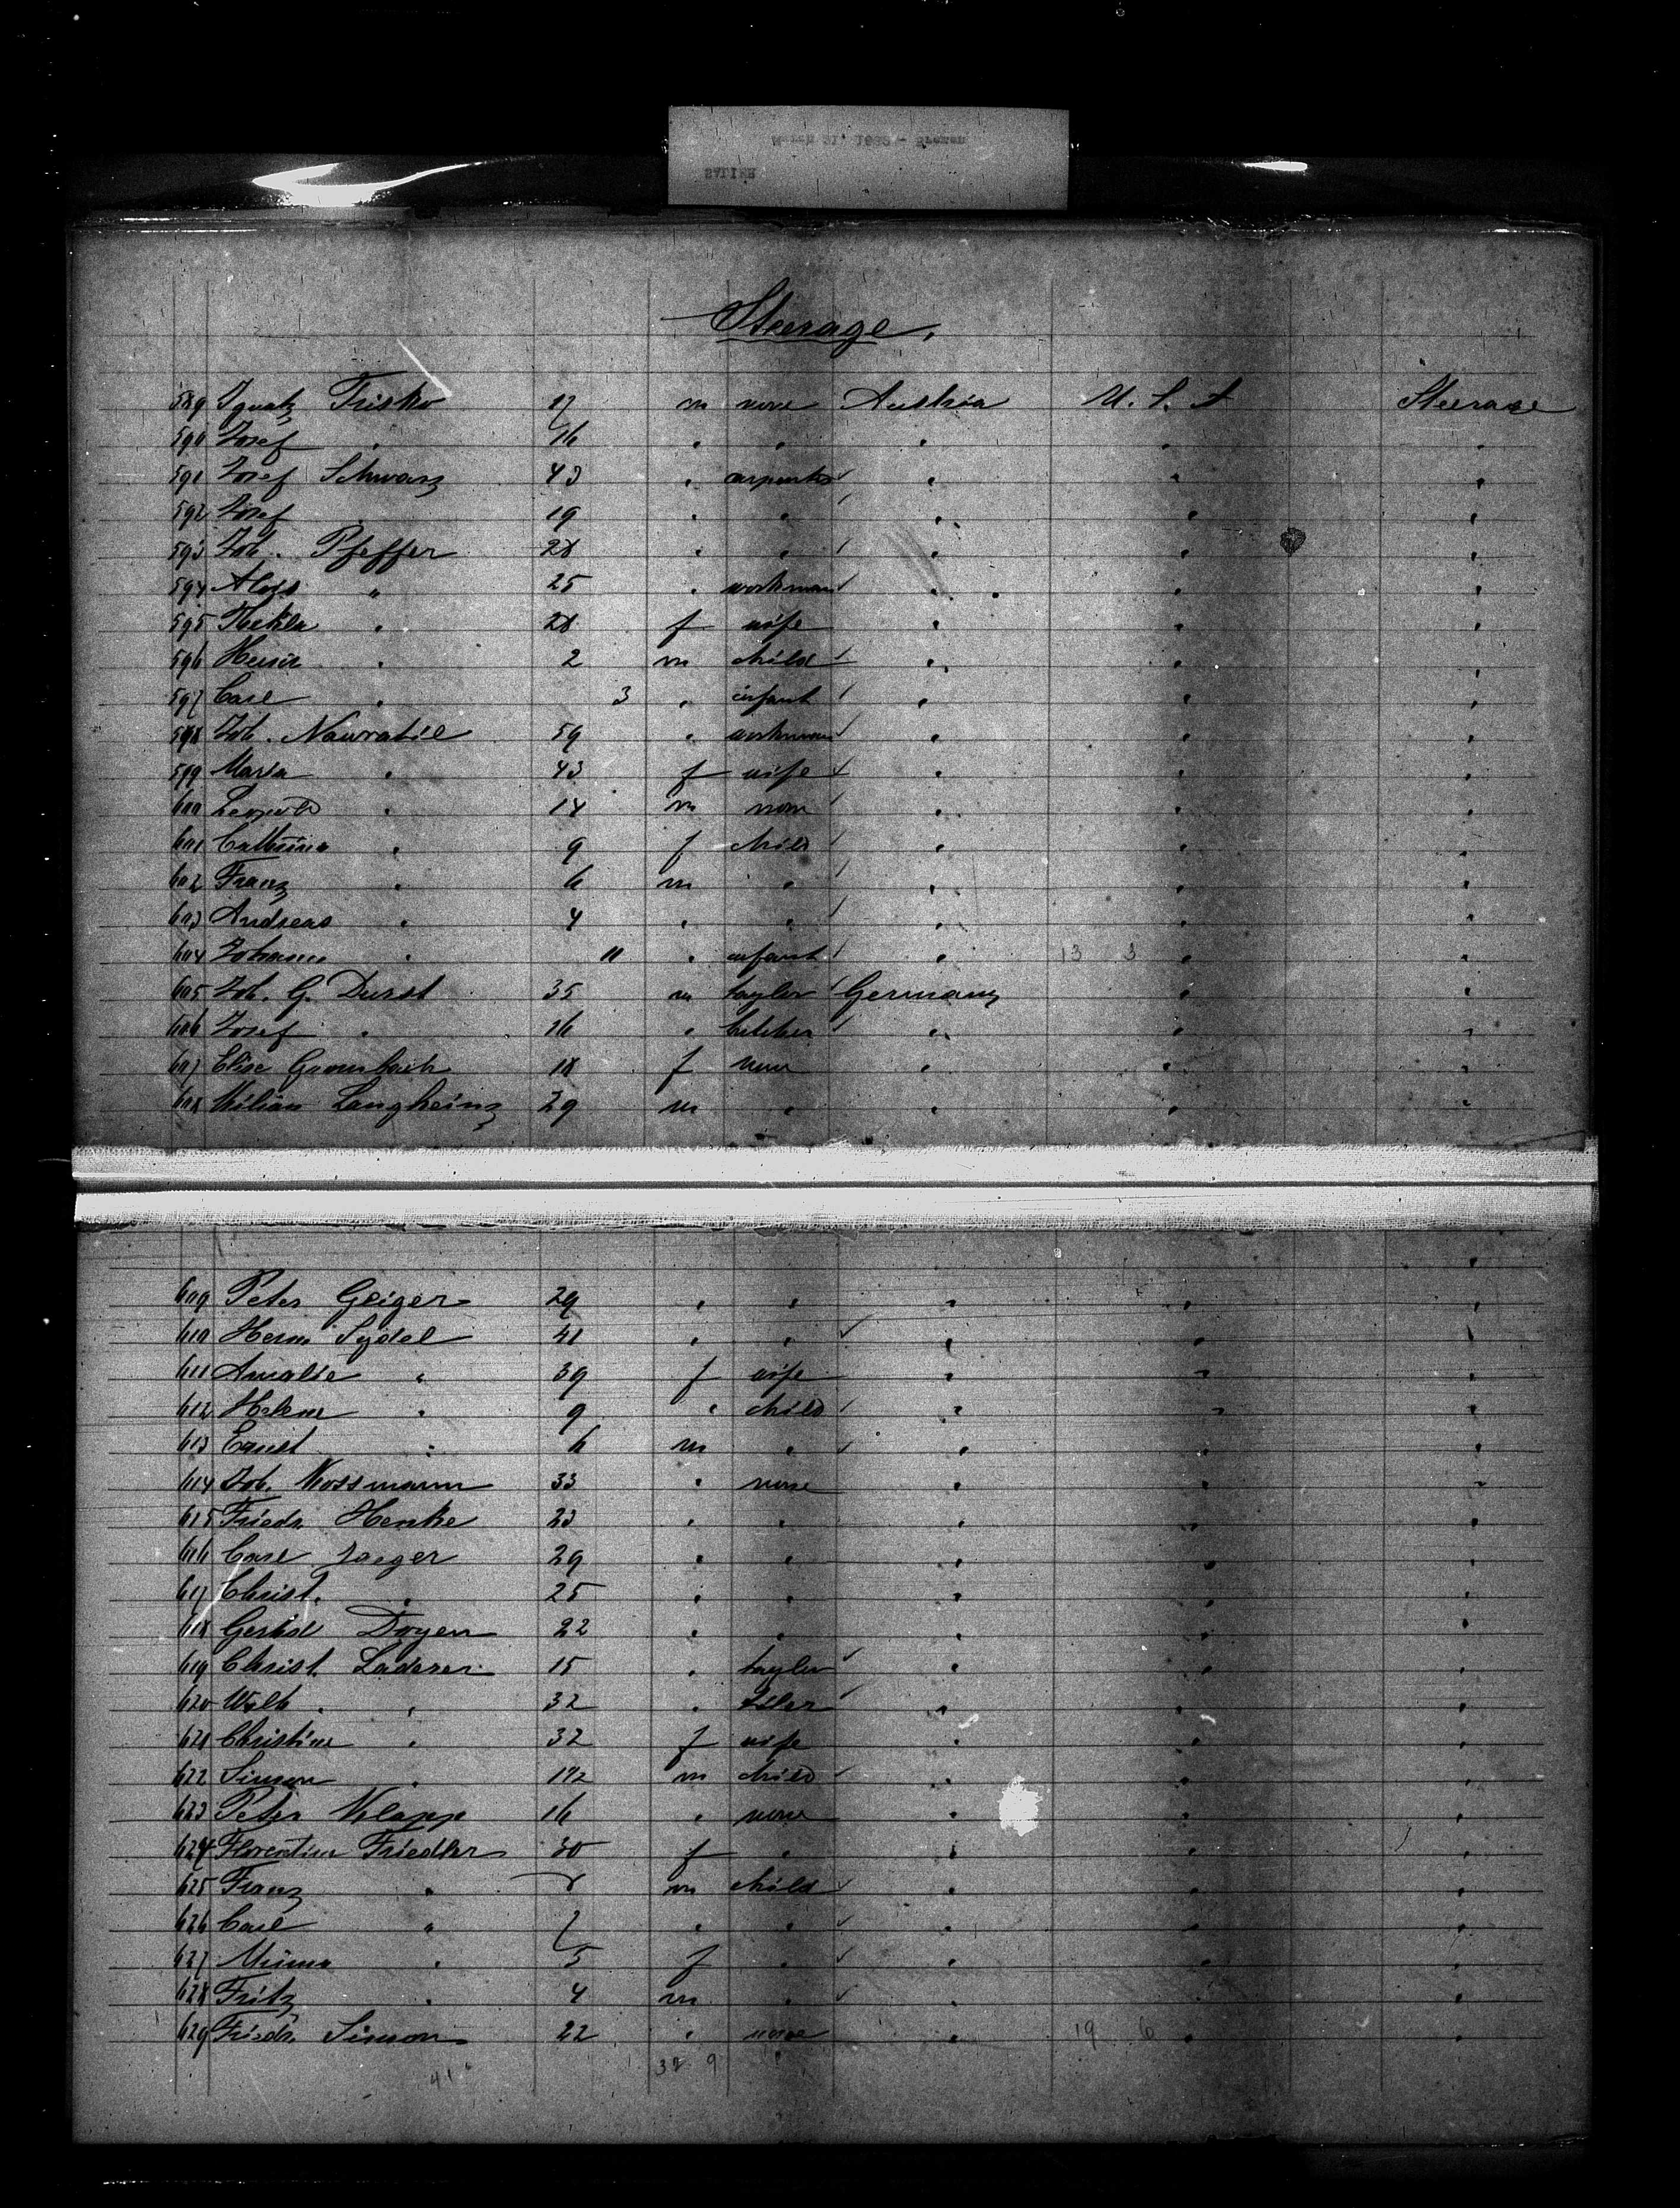 SALIER
March 21, 1882 - Bremen
Steerage.
589 Ignatz Trisko 17 m none Austria U. S. A Steerage
590 Josef " 16 " " " " "
591 Josef Schwarz 43 " carpenter " " "
592 Josef 19 " " " " "
593 Joh. Pfeffer 28 " " " " "
594 Alois " 25 " workman " " "
595 Thekla " 28 f wife " " "
596 " 2 m child " " "
597 Carl " 3 " infant " " "
598 Joh. Nawratil 59 " workman " " "
599 Maria " 43 f wife " " "
600 Leopold " 14 m none " " "
601 Catharina " 9 f child " " "
602 Franz " 6 m " " " "
603 Andreas " 4 " " " " "
604 Johann " 11 " infant " 13 3 " "
605 Joh. G. Durst 35 m taylor Germany " "
606 Josef " 16 " butcher " " "
607 Elise 18 f none " " "
608 Kilian Langheinz 29 m " " " "
609 Peter Geiger 29 " " " " "
610 Herm Sydel 41 " " " " "
611 Amalie " 39 f wife " " "
612 Helene " 9 " child " " "
613 Ernst " 6 m " " " "
614 Joh. Mossmann 33 " none " " "
615 Friedr. Henke 23 " " " " "
616 Carl Jaeger 29 " " " " "
617 Christ. " 25 " " " " "
618 Doyen 22 " " " " "
619 Christ. Laderer 15 " taylor " " "
620 Wilh. " 32 " " " "
621 Christine " 32 f wife " " "
622 Simon " 1 1/2 m child " " "
623 Peter Klapp 16 " none " " "
624 Florentine Friedler 30 f " " " "
625 Franz " 8 m child " " "
626 Carl " 7 " " " " "
627 Minna " 5 f " " " "
628 Fritz " 4 m " " " "
629 Friedr. Simon 22 " none " 19 6 " "
41 32 9